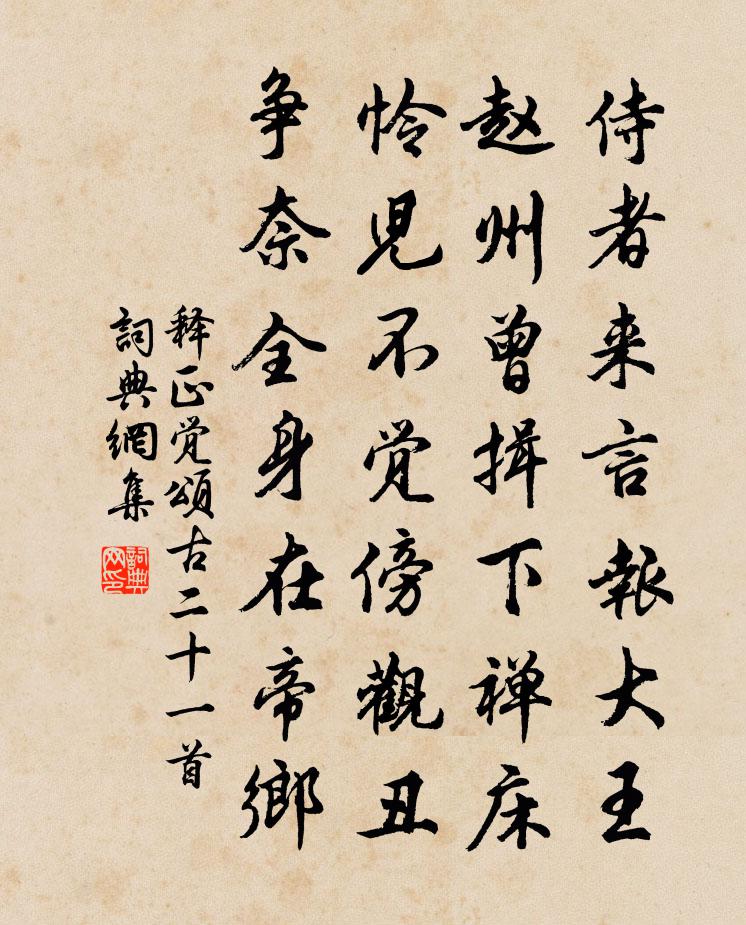 侍者来言報大王
赵州曾揖下禅床
怜児不覚傍觀丑
争奈全身在帝鄉
释正覚頌古二十一首
詞典網集
詞典网印